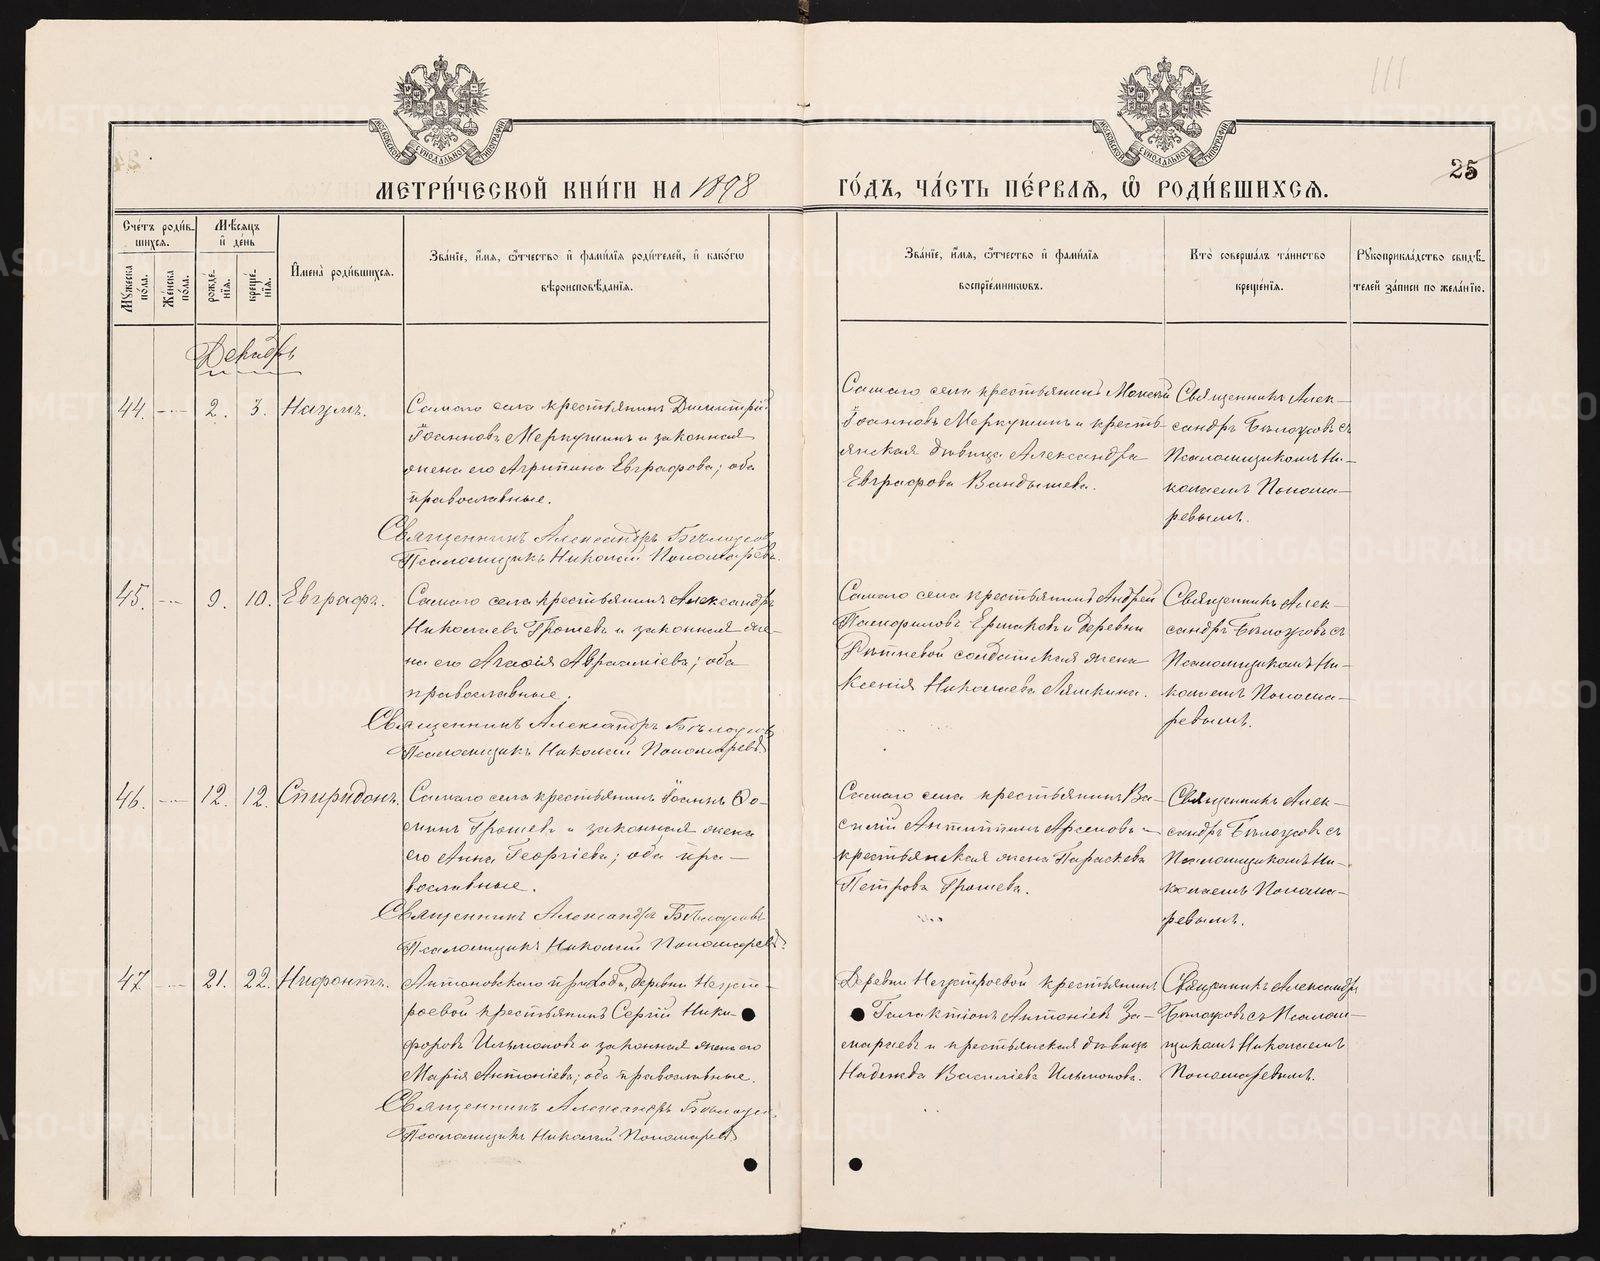 111
25
МОСКОВСКОЙ СѴНОДАЛЬНОЙ ТИПОГРАФІИ
МОСКОВСКОЙ СѴНОДАЛЬНОЙ ТИПОГРАФІИ
МЕТРИ́ЧЕСКОЙ КНИ́ГИ НА 1898
ГО́ДЪ, ЧА́СТЬ ПЕ́РВАѦ, Ѿ РОДИ́ВШИХСѦ.
Сче́тъ роди́в-
шихся.
Мѣ́сяцъ
и҆ де́нь
Му́жеска по́ла.
Же́нска по́ла.
рожде́нїя.
креще́нїя.
И҆мена̀ роди́вшихся.
Зва́нїе, и҆́мя, ѻ҆́тчество и҆ фами́лїя роди́телей, и҆ како́гѡ
вѣроисповѣ́данїя.
Зва́нїе, и҆́мя, ѻ҆́тчество и҆ фами́лїя
воспрїе́мникѡвъ.
Кто̀ соверша́лъ та́инство
креще́нїя.
Рꙋкоприкла́дство свидѣ́-
телей за́писи по жела́нїю.
Декабрь
44. — 2. 3. Наумъ.
Самаго села крестьянинъ Димитрій
Іоанновъ Меркушинъ и законная
жена его Агрипина Евграфова; оба
православные.
Священникъ Александръ Бѣлоусовъ
Псаломщикъ Николай Пономаревъ
Самаго села крестьянинъ
Іоанновъ Меркушинъ и кресть-
янская дѣвица Александра
Евграфова Вандышева.
Священникъ Алек-
сандръ Бѣлоусовъ съ
Псаломщикомъ Ни-
колаемъ Понома-
ревымъ.
45. — 9. 10. Евграфъ.
Самаго села крестьянинъ Александръ
Николаевъ Грошевъ и законная же-
на его Агафія Авраамiева; оба
православные.
Священникъ Александръ Бѣлоусовъ
Псаломщикъ Николай Пономаревъ
Самаго села крестьянинъ Андрей
Памфиловъ Ермаковъ и деревни
солдатская жена
Ксенія Николаева Лямкина.
Священникъ Алек-
сандръ Бѣлоусовъ съ
Псаломщикомъ Ни-
колаемъ Понома-
ревымъ.
46. — 12. 12. Спиридонъ.
Самаго села крестьянинъ Іоаннъ Ѳо-
минъ Грошевъ и законная жена
его Анна Георгіева; оба пра-
вославные.
Священникъ Александръ Бѣлоусовъ
Псаломщикъ Николай Пономаревъ
Самаго села крестьянинъ Ва-
силій Антиппинъ Арсеновъ и
крестьянская жена Параскева
Петрова Грошева.
Священникъ Алек-
сандръ Бѣлоусовъ съ
Псаломщикомъ Ни-
колаемъ Понома-
ревымъ.
47 — 21. 22. Нифонтъ.
Антоновскаго прихода, деревни Неуст-
роевой крестьянинъ Сергій Ники-
форовъ Ильтоновъ и законная жена его
Марія Антоніева; оба православные.
Священникъ Александръ Бѣлоусовъ
Псаломщикъ Николай Пономаревъ
Деревни Неустроевой крестьянинъ
Галактіонъ Антоніевъ За-
мараевъ и крестьянская дѣвица
Надежда Василіева Ильтонова.
Священникъ Александръ
Бѣлоусовъ съ Псалом-
щикомъ Николаемъ
Пономаревымъ.
METRIKI.GASO-URAL.RU